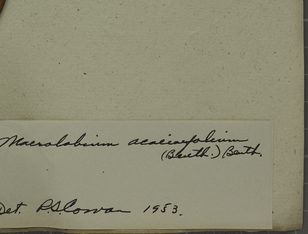 Macrolobium acaciaefolium
(Benth.) Benth.
Det. R.S. Cowan 1953.